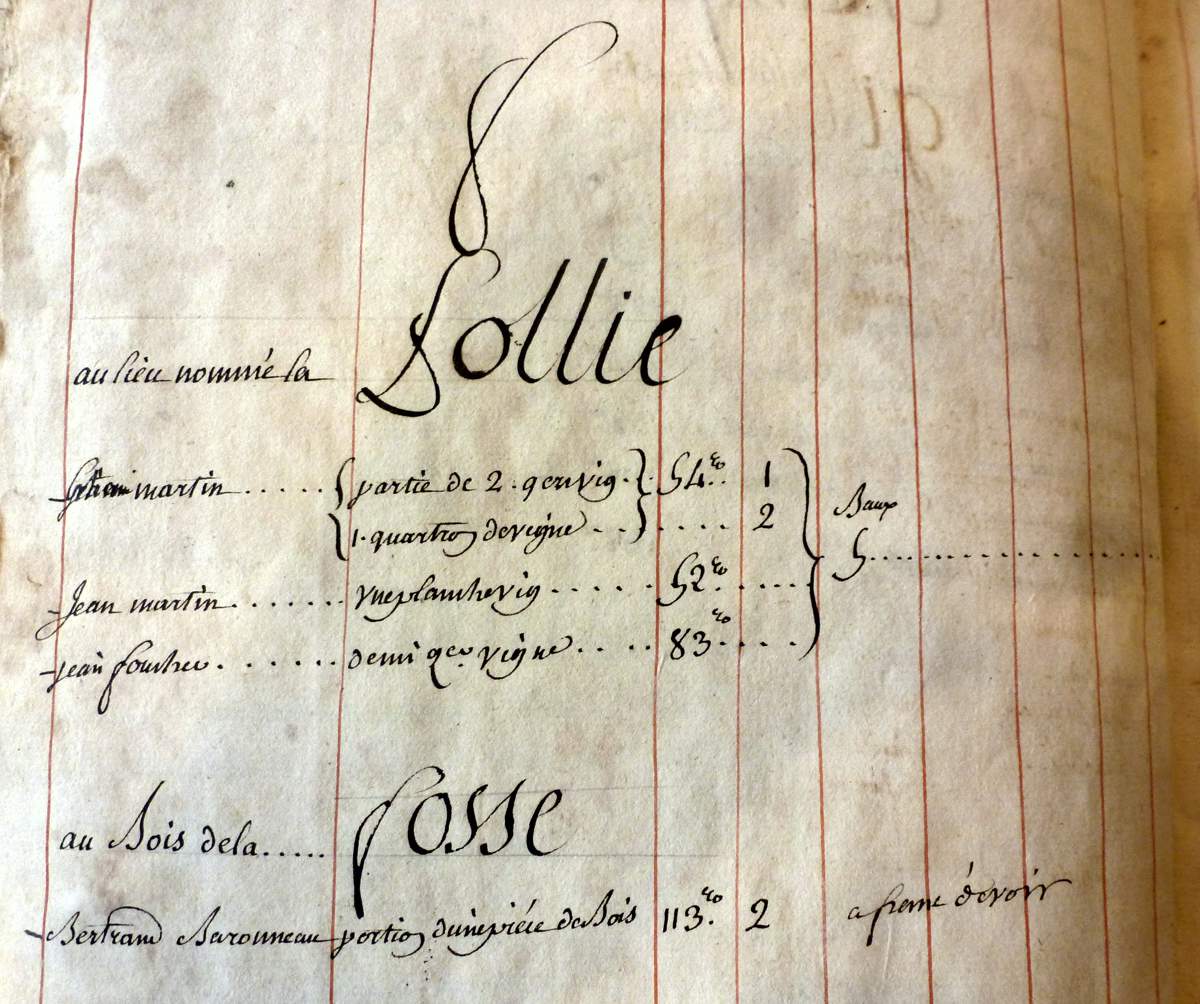 au lieu nommé la Follie
martin ..... { partie de 2. qer vig. } 54.ro 1
1. quartro devigne .. .... 2 Baux
Jean martin ....... vne planche vig ..... 52.ro .... 5 ................
jean fouchee ....... demi qer. vigne .... 83.ro ....
au Bois de la ..... fosse
Bertrand Baronneau portion dune piéce de Bois 113.ro 2 a freme devoir